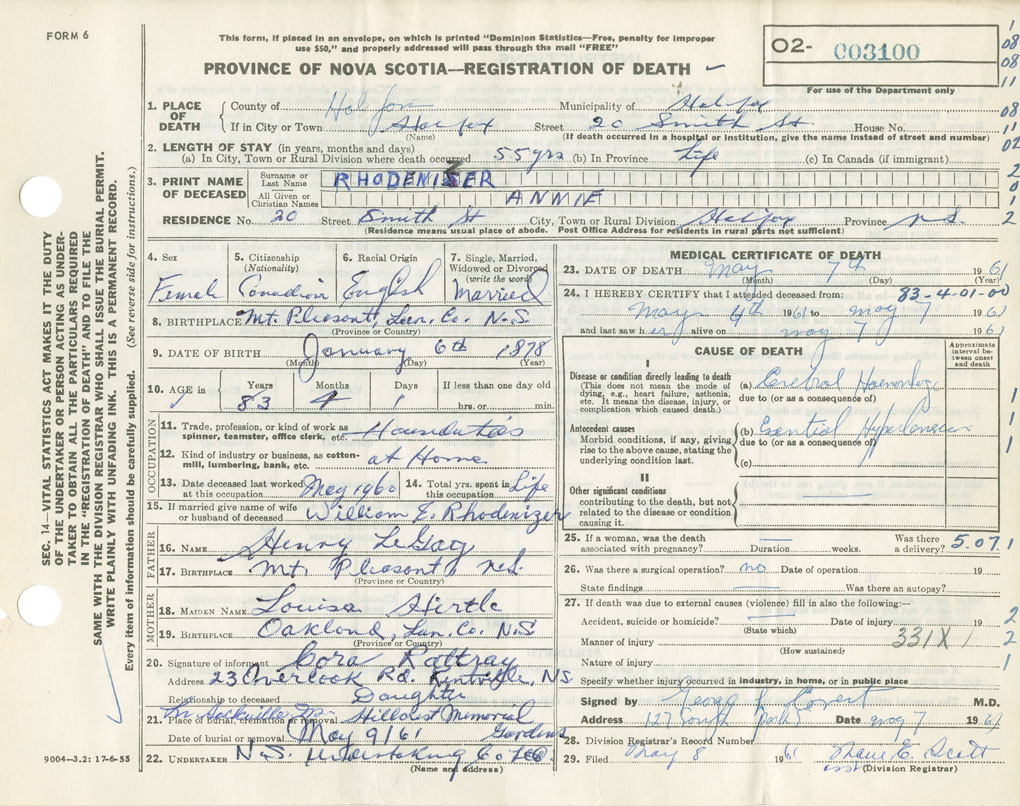 FORM 6
This form, if placed in an envelope, on which is printed "Dominion Statistics—Free, penalty for improper
use $50," and properly addressed will pass through the mail "FREE"
PROVINCE OF NOVA SCOTIA—REGISTRATION OF DEATH
O2- 003100
For use of the Department only
1. PLACE OF DEATH County of Halifax Municipality of Halifax
If in City or Town Halifax Street 20 Smith St House No.
(Name) (If death occurred in a hospital or institution, give the name instead of street and number)
2. LENGTH OF STAY (in years, months and days)
(a) In City, Town or Rural Division where death occurred 55 yrs (b) In Province Life (c) In Canada (if immigrant)
3. PRINT NAME OF DECEASED Surname or Last Name RHODENIZER
All Given or Christian Names ANNIE
RESIDENCE No. 20 Street Smith St City, Town or Rural Division Halifax Province N.S.
(Residence means usual place of abode. Post Office Address for residents in rural parts not sufficient)
4. Sex Female
5. Citizenship (Nationality) Canadian
6. Racial Origin English
7. Single, Married, Widowed or Divorced (write the word) Married
8. BIRTHPLACE Mt. Pleasant, Lun. Co. N.S.
(Province or Country)
9. DATE OF BIRTH January 6th 1878
(Month) (Day) (Year)
10. AGE in Years 83 Months 4 Days 1 If less than one day old hrs. or min.
OCCUPATION
11. Trade, profession, or kind of work as spinner, teamster, office clerk, etc. Housduties
12. Kind of industry or business, as cotton-mill, lumbering, bank, etc. at Home
13. Date deceased last worked at this occupation May 1960 14. Total yrs. spent in this occupation Life
15. If married give name of wife or husband of deceased William E. Rhodenizer
FATHER
16. NAME Henry LeGay
17. BIRTHPLACE Mt. Pleasant N.S.
(Province or Country)
MOTHER
18. MAIDEN NAME Louisa Hirtle
19. BIRTHPLACE Oakland, Lun. Co. N.S
(Province or Country)
20. Signature of informant Cora Rattray
Address 23 Overlook Rd. Kentville, N.S.
Relationship to deceased Daughter
21. Place of burial, cremation or removal Hillcrest Memorial Gardens
Date of burial or removal May 9/61
22. UNDERTAKER N.S. Undertaking Co Ltd
(Name and address)
MEDICAL CERTIFICATE OF DEATH
23. DATE OF DEATH May 7th 1961
(Month) (Day) (Year)
24. I HEREBY CERTIFY that I attended deceased from: 83-4-01-00
May 4th 1961 to May 7 1961
and last saw her alive on May 7 1961
CAUSE OF DEATH
Approximate interval between onset and death
I
Disease or condition directly leading to death
(This does not mean the mode of dying, e.g., heart failure, asthenia, etc. It means the disease, injury, or complication which caused death.)
(a) Cerebral Haemorrhage
due to (or as a consequence of)
Antecedent causes
Morbid conditions, if any, giving rise to the above cause, stating the underlying condition last.
(b) Essential Hypertension
due to (or as a consequence of)
(c)
II
Other significant conditions
contributing to the death, but not related to the disease or condition causing it.
25. If a woman, was the death associated with pregnancy? Duration weeks. Was there a delivery? 5.071
26. Was there a surgical operation? no Date of operation 19
State findings Was there an autopsy?
27. If death was due to external causes (violence) fill in also the following:—
Accident, suicide or homicide? Date of injury 19
(State which)
Manner of injury 331X
(How sustained)
Nature of injury
Specify whether injury occurred in industry, in home, or in public place
Signed by M.D.
Address Date May 7 1961
28. Division Registrar's Record Number
29. Filed May 8 1961 E. Scott
asst (Division Registrar)
SEC. 14—VITAL STATISTICS ACT MAKES IT THE DUTY
OF THE UNDERTAKER OR PERSON ACTING AS UNDER-
TAKER TO OBTAIN ALL THE PARTICULARS REQUIRED
IN THE "REGISTRATION OF DEATH" AND TO FILE THE
SAME WITH THE DIVISION REGISTRAR WHO SHALL ISSUE THE BURIAL PERMIT.
WRITE PLAINLY WITH UNFADING INK. THIS IS A PERMANENT RECORD.
Every item of information should be carefully supplied. (See reverse side for instructions.)
9004—3.2: 17-6-55
1
08
08
11
08
11
02
2
0
2
1
1
1
1
2
2
1